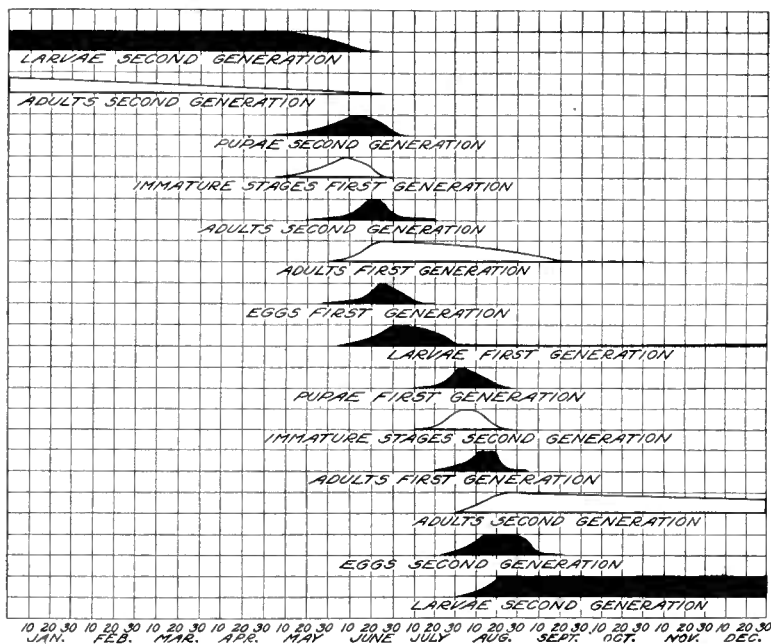 LARVAE SECOND GENERATION
ADULTS SECOND GENERATION
PUPAE SECOND GENERATION
IMMATURE STAGES FIRST GENERATION
ADULTS SECOND GENERATION
ADULTS FIRST GENERATION
EGGS FIRST GENERATION
LARVAE FIRST GENERATION
PUPAE FIRST GENERATION
IMMATURE STAGES SECOND GENERATION
ADULTS FIRST GENERATION
ADULTS SECOND GENERATION
EGGS SECOND GENERATION
LARVAE SECOND GENERATION
10 20 30 10 20 30 10 20 30 10 20 30 10 20 30 10 20 30 10 20 30 10 20 30 10 20 30 10 20 30 10 20 30 10 20 30
JAN. FEB. MAR. APR. MAY JUNE JULY AUG. SEPT. OCT. NOV. DEC.